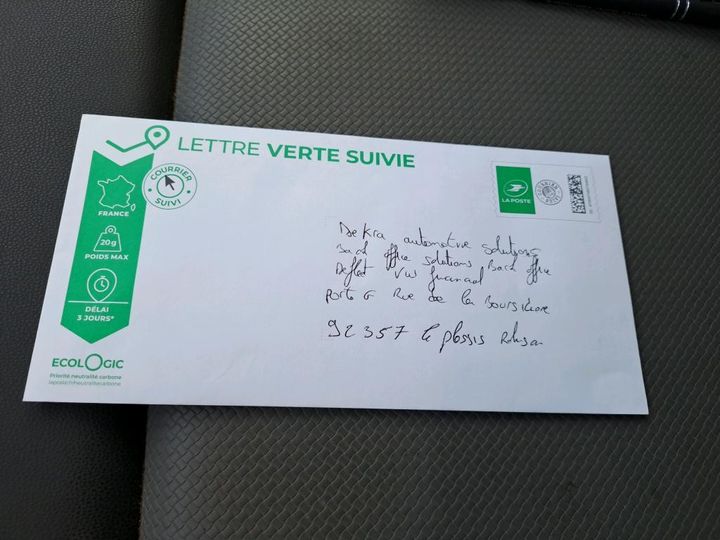 LETTRE VERTE SUIVIE
COURRIER SUIVI
FRANCE
20g
POIDS MAX
DÉLAI
3 JOURS*
ECOLOGIC
Priorité neutralité carbone
laposte.fr/neutralitecarbone
LA POSTE
COURRIER SUIVI
Dekra automotive solutions
Back office solutions Back office
Defleet VW financial
Porte G Rue de la Boursidiere
92357 le plessis Robinson